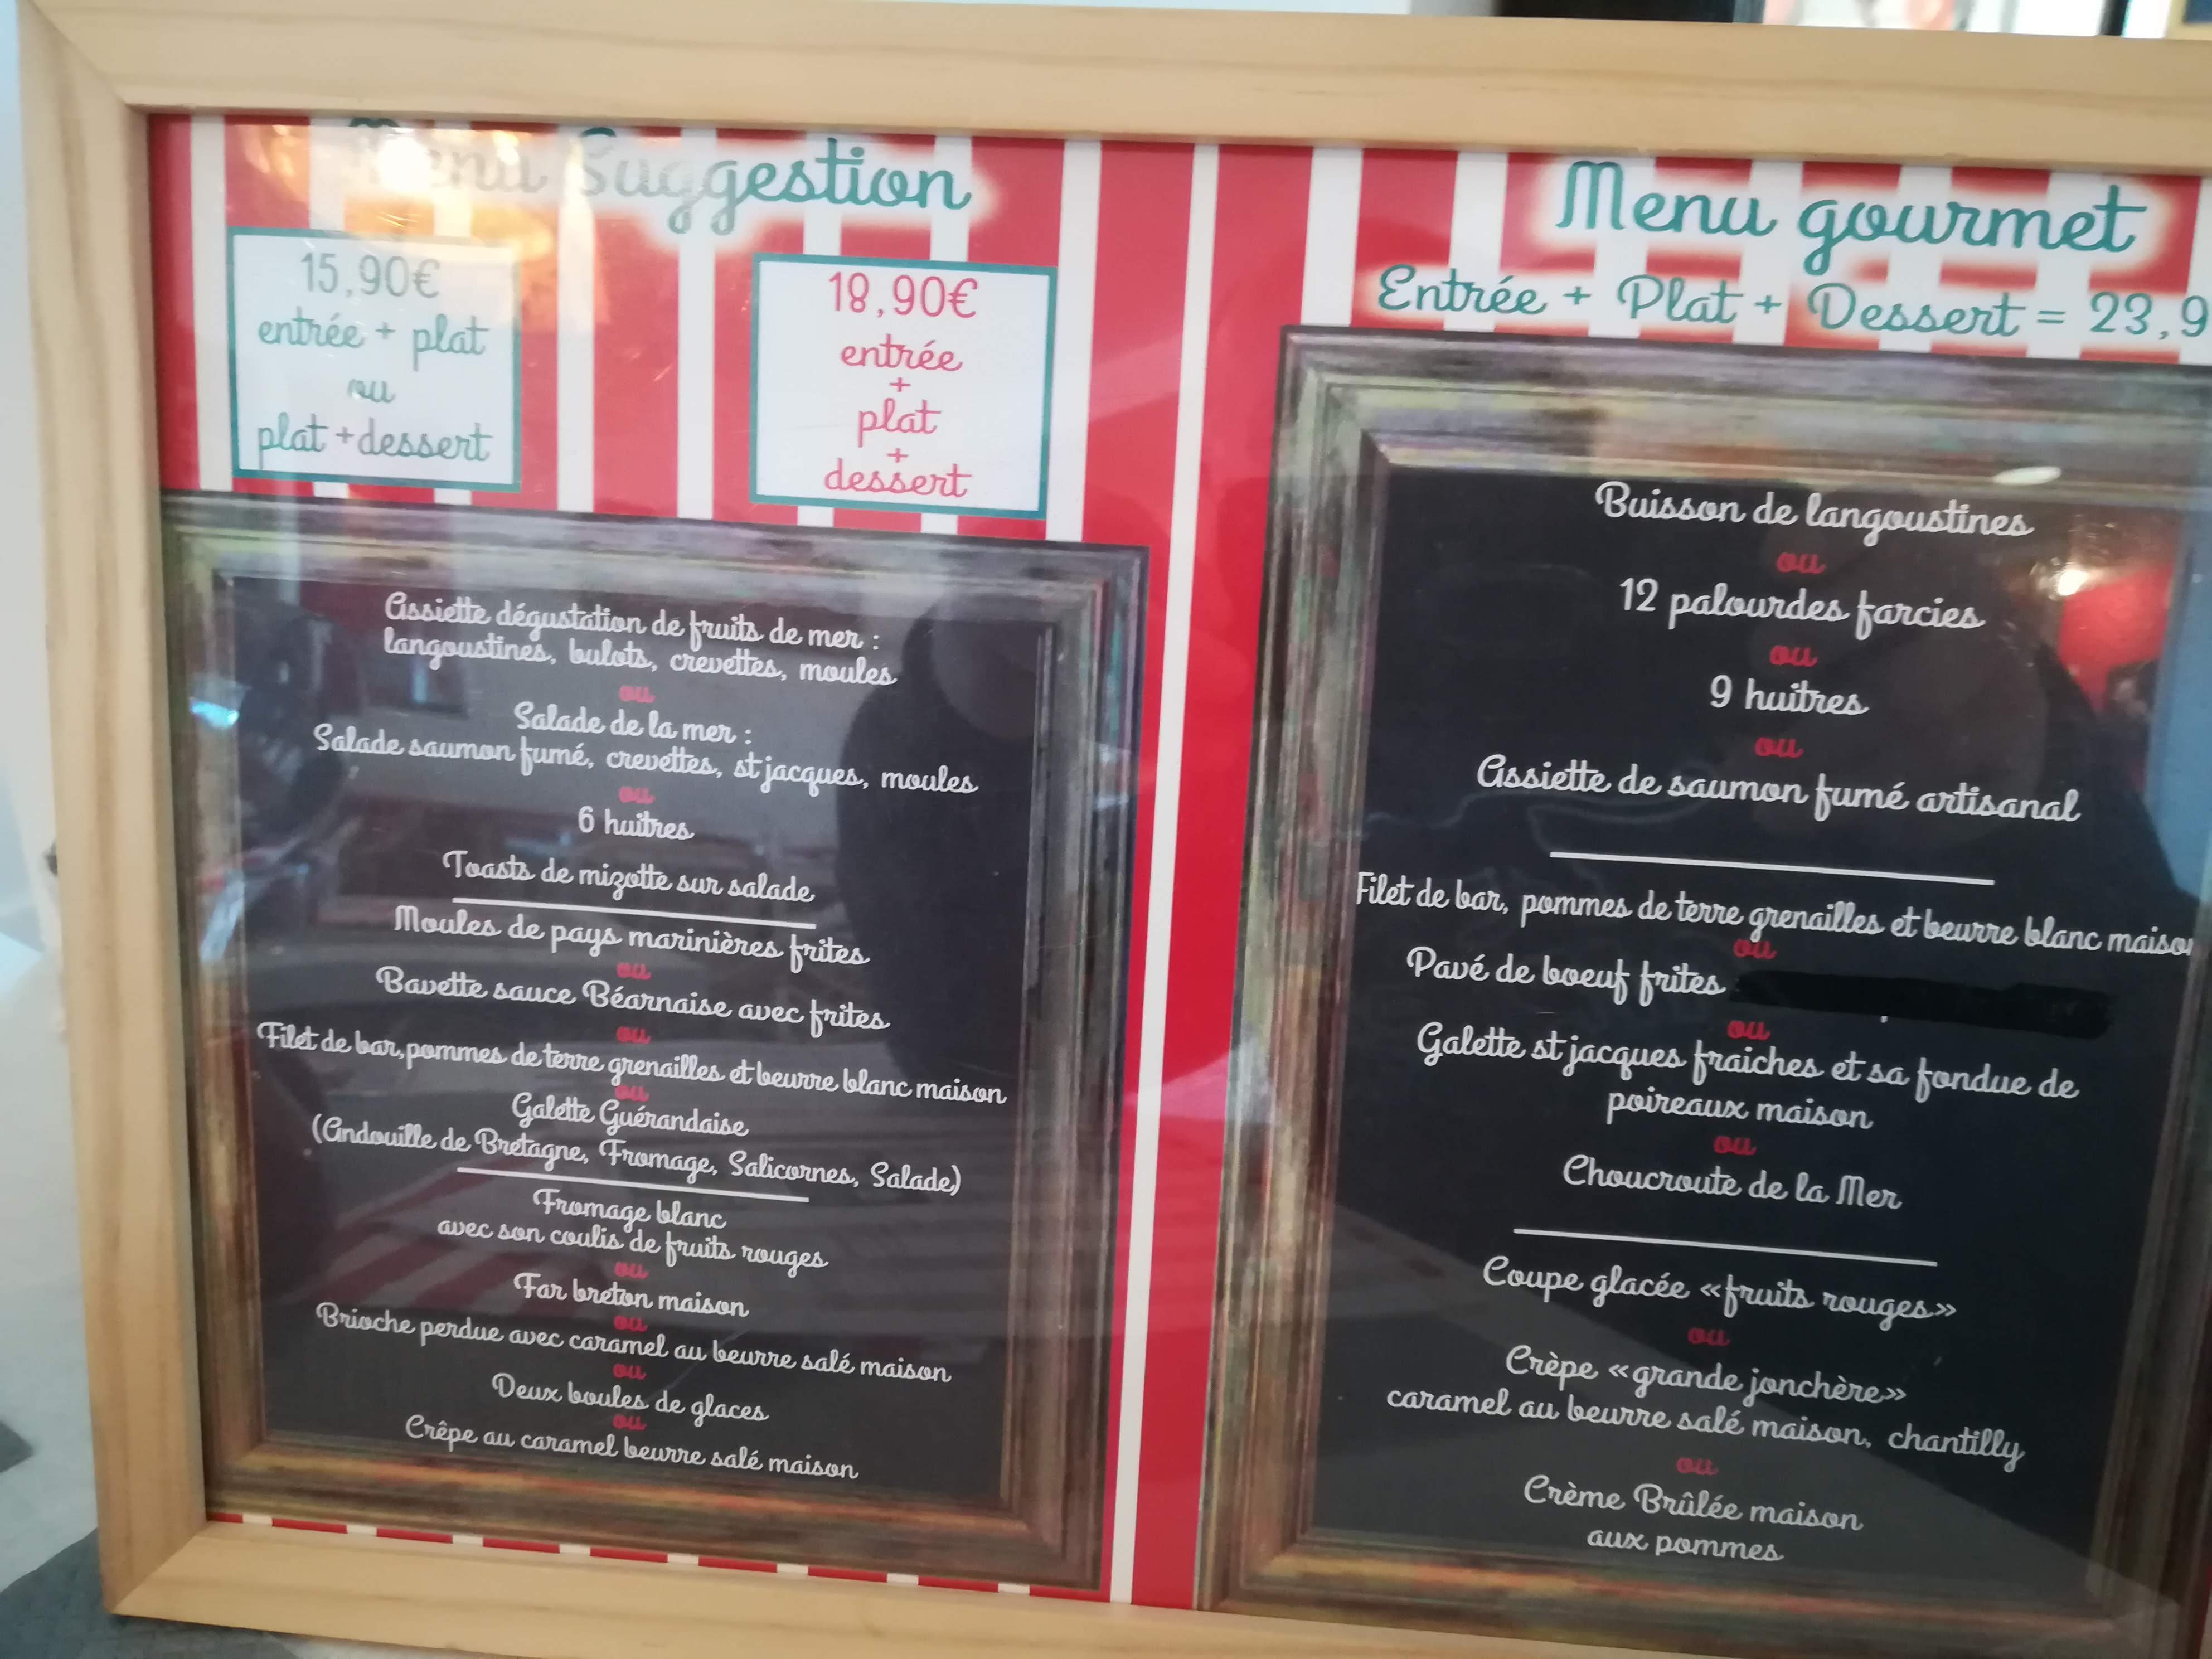 Menu Suggestion
15,90€
entrée + plat
ou
plat + dessert
18,90€
entrée
+
plat
+
dessert
Assiette dégustation de fruits de mer :
langoustines, bulots, crevettes, moules
ou
Salade de la mer :
Salade saumon fumé, crevettes, st jacques, moules
ou
6 huitres
Toasts de mizotte sur salade
Moules de pays marinières frites
ou
Bavette sauce Béarnaise avec frites
ou
Filet de bar, pommes de terre grenailles et beurre blanc maison
ou
Galette Guérandaise
(Andouille de Bretagne, Fromage, Salicornes, Salade)
Fromage blanc
avec son coulis de fruits rouges
ou
Far breton maison
ou
Brioche perdue avec caramel au beurre salé maison
ou
Deux boules de glaces
ou
Crêpe au caramel beurre salé maison
Menu gourmet
Entrée + Plat + Dessert = 23,9
Buisson de langoustines
ou
12 palourdes farcies
ou
9 huitres
ou
Assiette de saumon fumé artisanal
Filet de bar, pommes de terre grenailles et beurre blanc maison
ou
Pavé de boeuf frites
ou
Galette st jacques fraiches et sa fondue de
poireaux maison
ou
Choucroute de la Mer
Coupe glacée «fruits rouges»
ou
Crèpe «grande jonchère»
caramel au beurre salé maison, chantilly
ou
Crème Brûlée maison
aux pommes